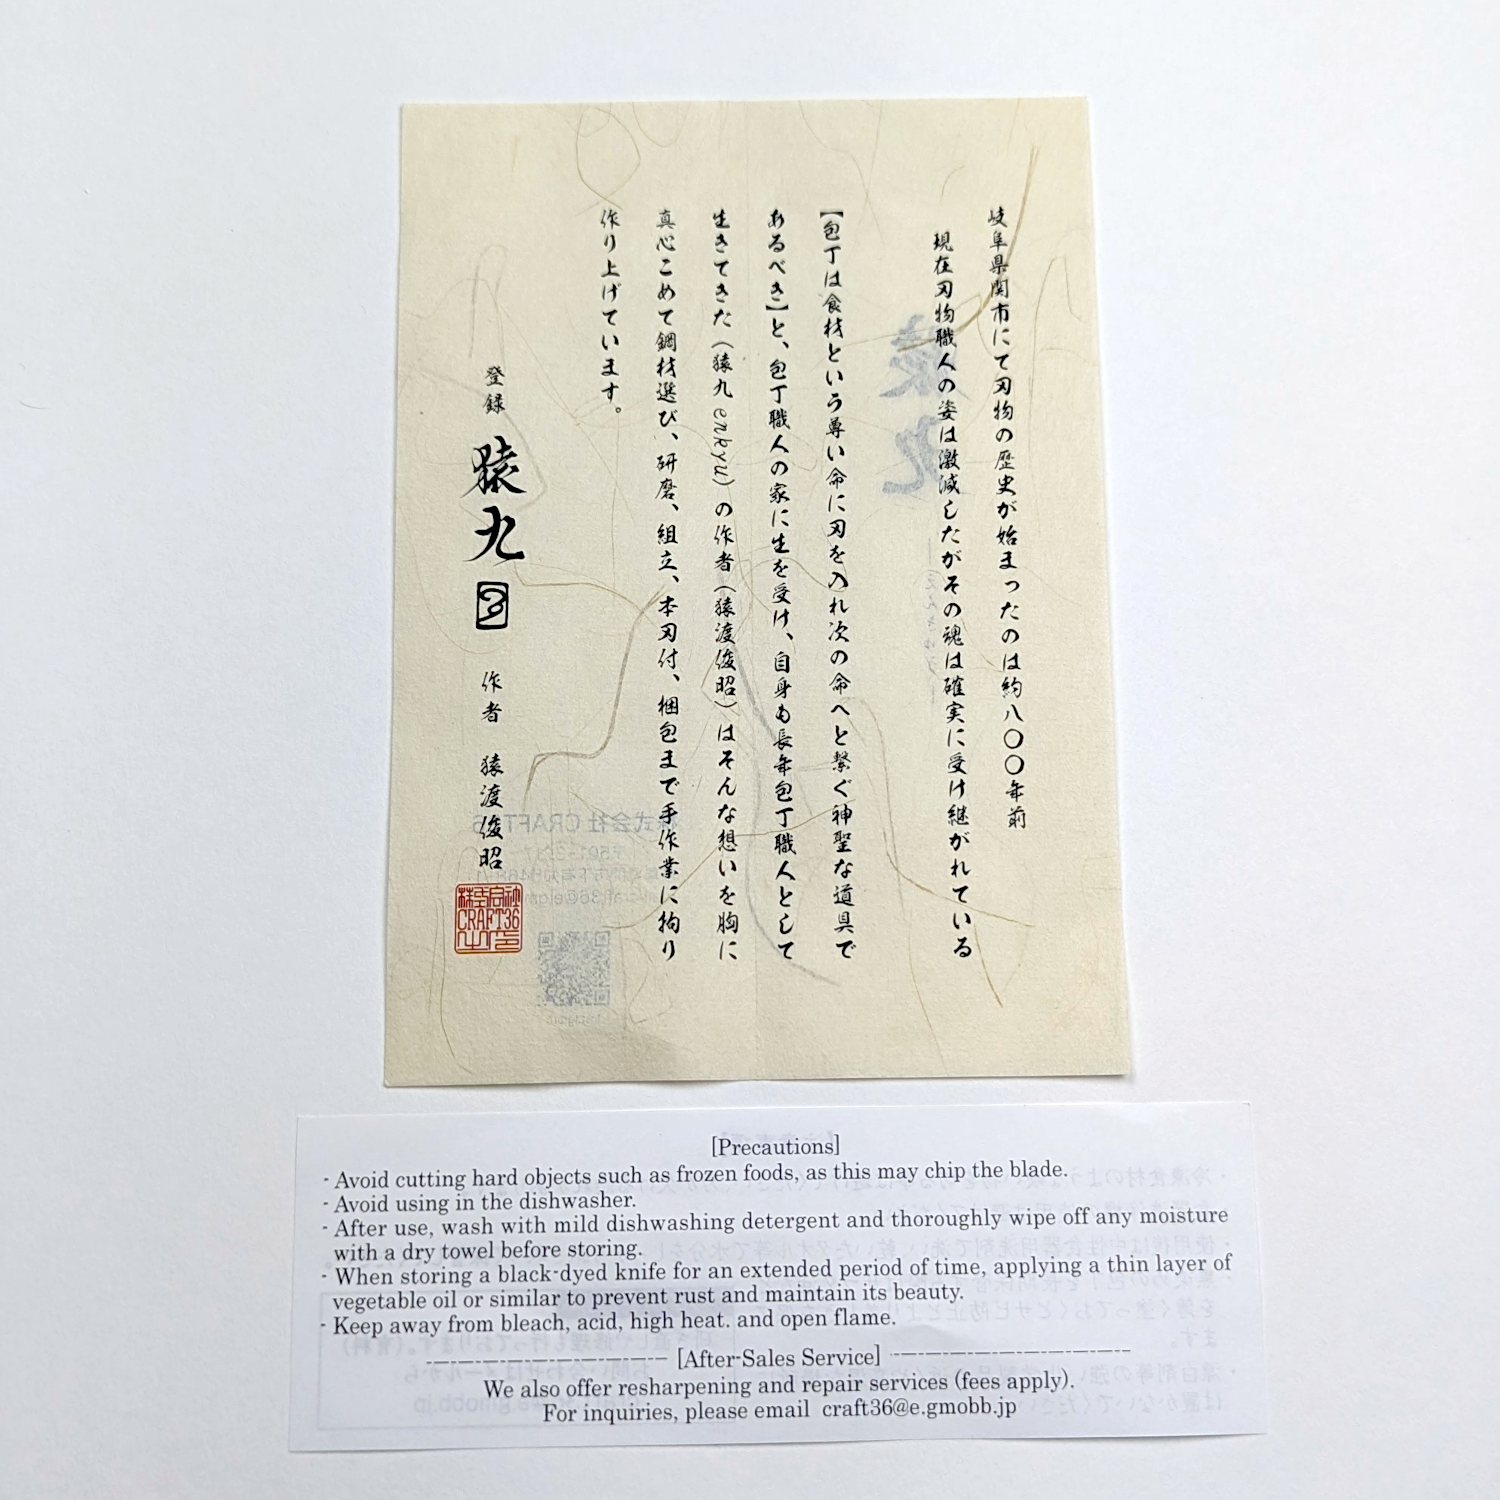 岐阜県関市にて刃物の歴史が始まったのは約八〇〇年前
現在刃物職人の姿は激減したがその魂は確実に受け継がれている
【包丁は食材という尊い命に刃を入れ次の命へと繋ぐ神聖な道具で
あるべき】と、包丁職人の家に生を受け、自身も長年包丁職人として
生きてきた（猿九enkyu）の作者（猿渡俊昭）はそんな想いを胸に
真心こめて鋼材選び、研磨、組立、本刃付、梱包まで手作業に拘り
作り上げています。
登録 猿九 作者 猿渡俊昭
株式会社
CRAFT36
[Precautions]
- Avoid cutting hard objects such as frozen foods, as this may chip the blade.
- Avoid using in the dishwasher.
- After use, wash with mild dishwashing detergent and thoroughly wipe off any moisture
with a dry towel before storing.
- When storing a black-dyed knife for an extended period of time, applying a thin layer of
vegetable oil or similar to prevent rust and maintain its beauty.
- Keep away from bleach, acid, high heat. and open flame.
[After-Sales Service]
We also offer resharpening and repair services (fees apply).
For inquiries, please email craft36@e.gmobb.jp